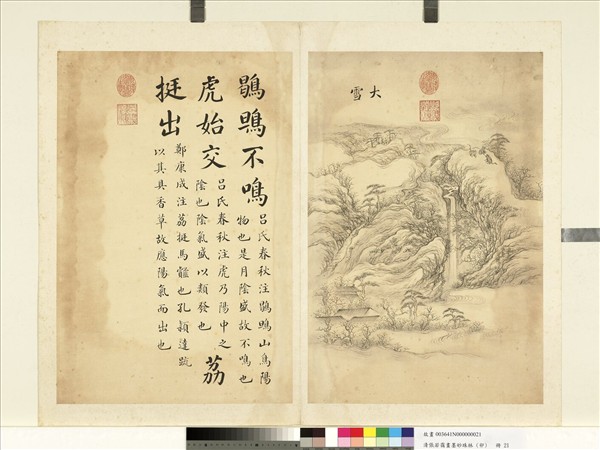 大雪
鶡鴠不鳴 呂氏春秋注鶡鴠山鳥陽
物也是月陰盛故不鳴也
虎始交 呂氏春秋注虎乃陽中之
陰也陰氣盛以類發也 荔
挺出 鄭康成注荔挺馬䪥也孔穎達疏
以其具香草故應陽氣而出也
故畫 003641N000000021
清張若靄畫墨妙珠林(卯) 冊 21